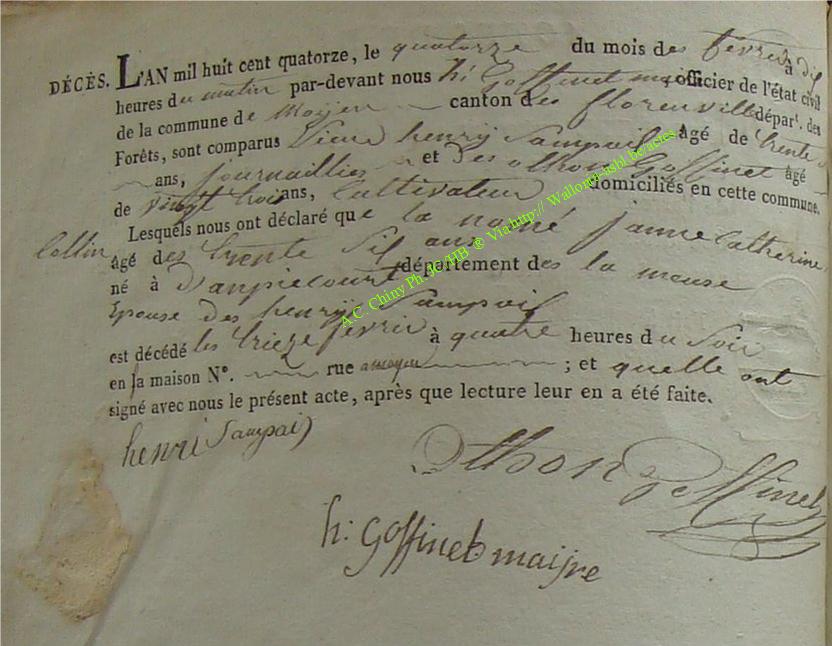 DÉCÈS. L'AN mil huit cent quatorze, le quatorze du mois des fevrier à dix
heures du matin par-devant nous h: Goffinet maire officier de l'état civil
de la commune de Moyen canton des florenville départ. des
Forêts, sont comparus henry Sampaix âgé de trente
ans, journaillier et des othon Goffinet âgé
de vingt trois ans, Cultivateur domiciliés en cette commune.
Lesquels nous ont déclaré que la nomé janne Catherine
Collin
âgé des trente Six ans
né à département des la meuse
Epouse des henry Sampaix
est décédé les trieze fevrier à quatre heures du Soir
en sa maison N°. rue amoyen ; et quelle ont
signé avec nous le présent acte, après que lecture leur en a été faite.
henri Sampaix
Othon Goffinet
h: Goffinet maijre
A.C. Chiny Ph. de HB ® Via http:// Wallonia-asbl.be/actes